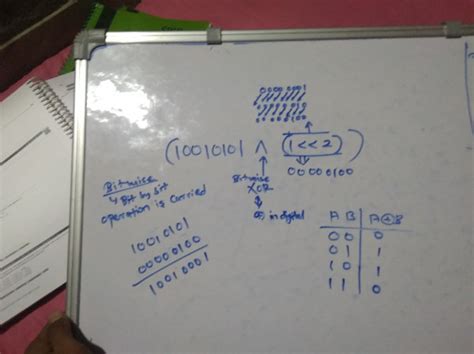 00000001
(10010101 ^ (1<<2))
00000100
Bitwise
XOR
⊕ in digital
Bitwise
↳ Bit by bit
operation is carried
10010101
00000100
10010001
A B A⊕B
0 0 0
0 1 1
1 0 1
1 1 0